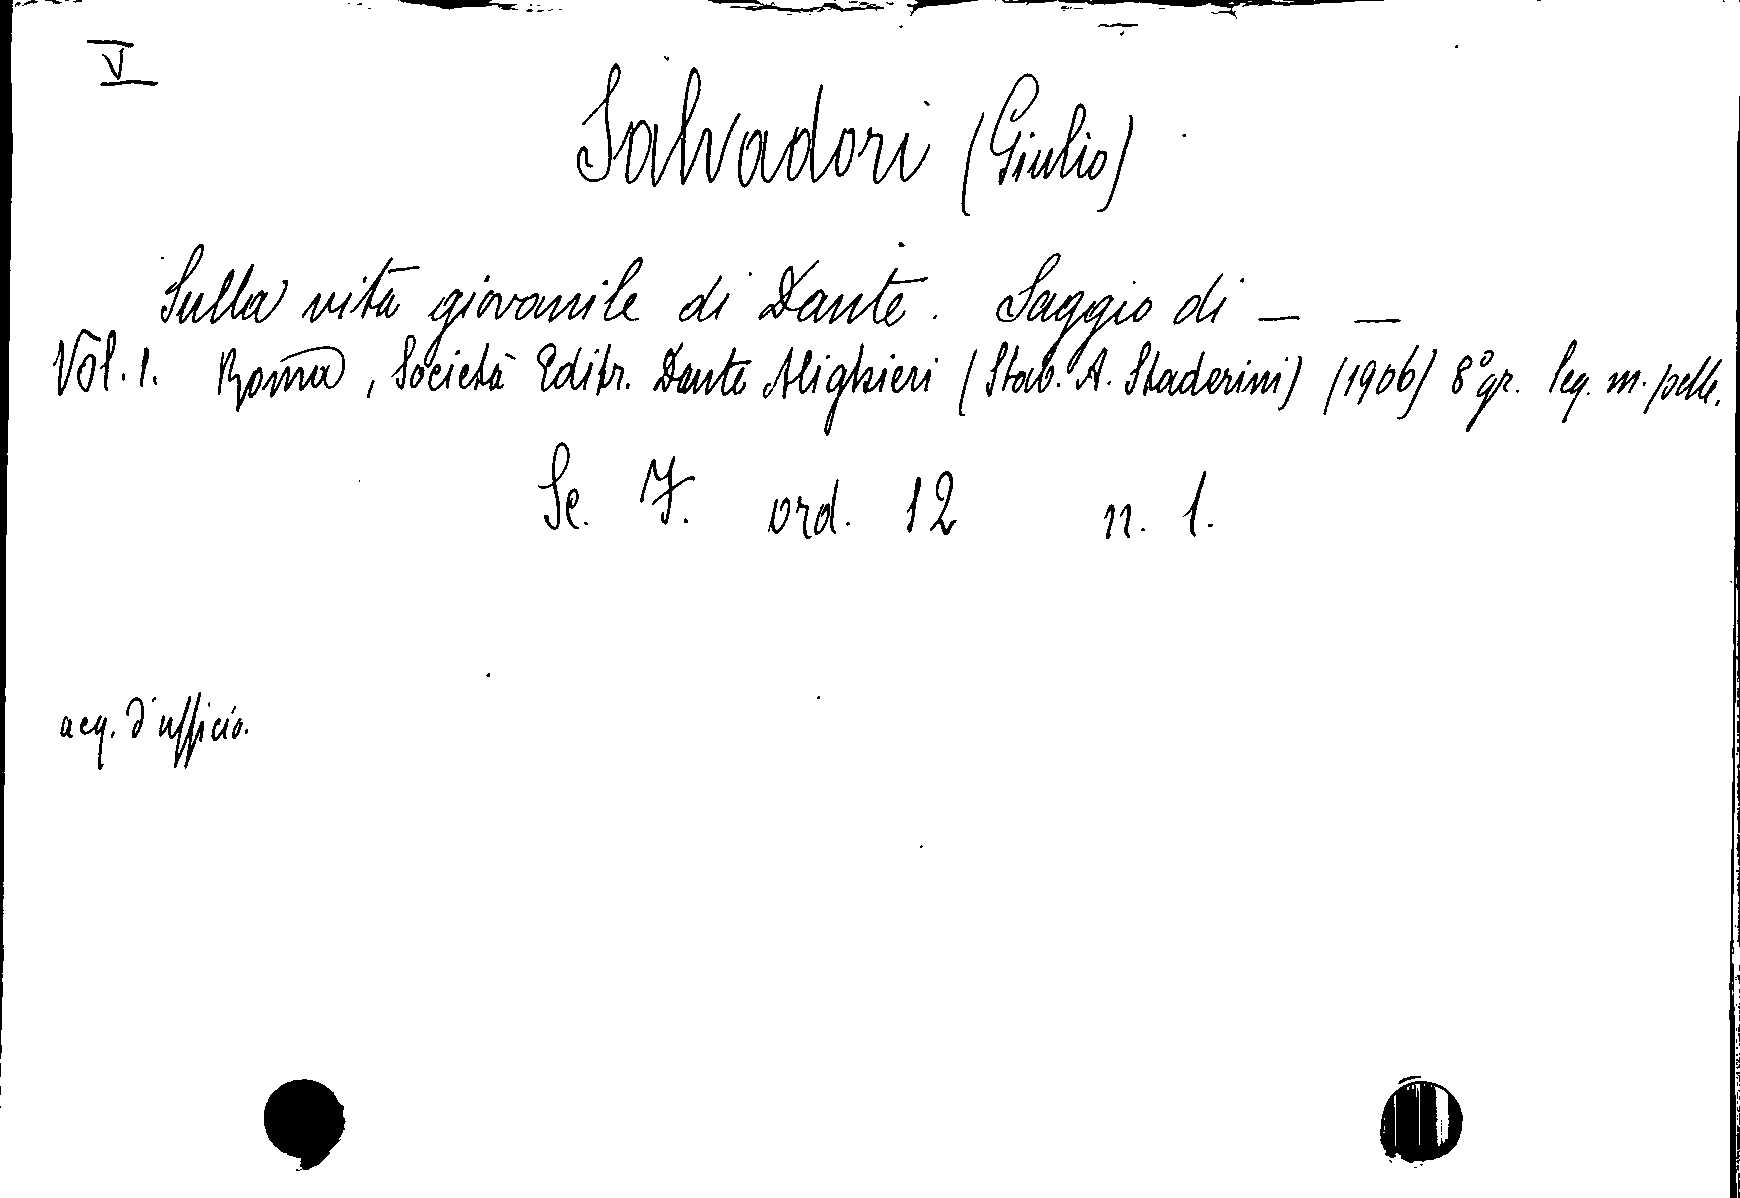 V
Salvadori (Giulio)
Sulla vita giovanile di Dante. Saggio di _ _
Vol. 1. Roma, Società Editr. Dante Alighieri (Stab. A. Staderini) (1906) 8° gr. leg. m. pelle.
Se. F. ord. 12 n. 1.
acq. d'ufficio.